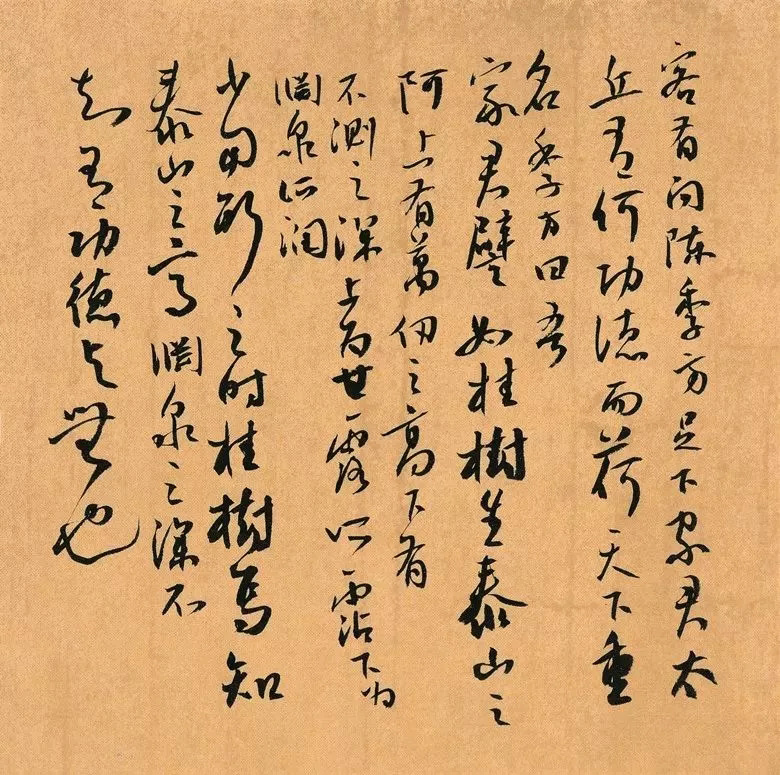 客有问陳季方足下家君太
丘有何功德而荷天下重
名季方曰吾
家君譬如桂樹生泰山之
阿上有萬仞之高下有
不測之深上为甘露所霑下为
淵泉所润
當斯之时桂樹焉知
泰山之高淵泉之深不
知有功德与無也